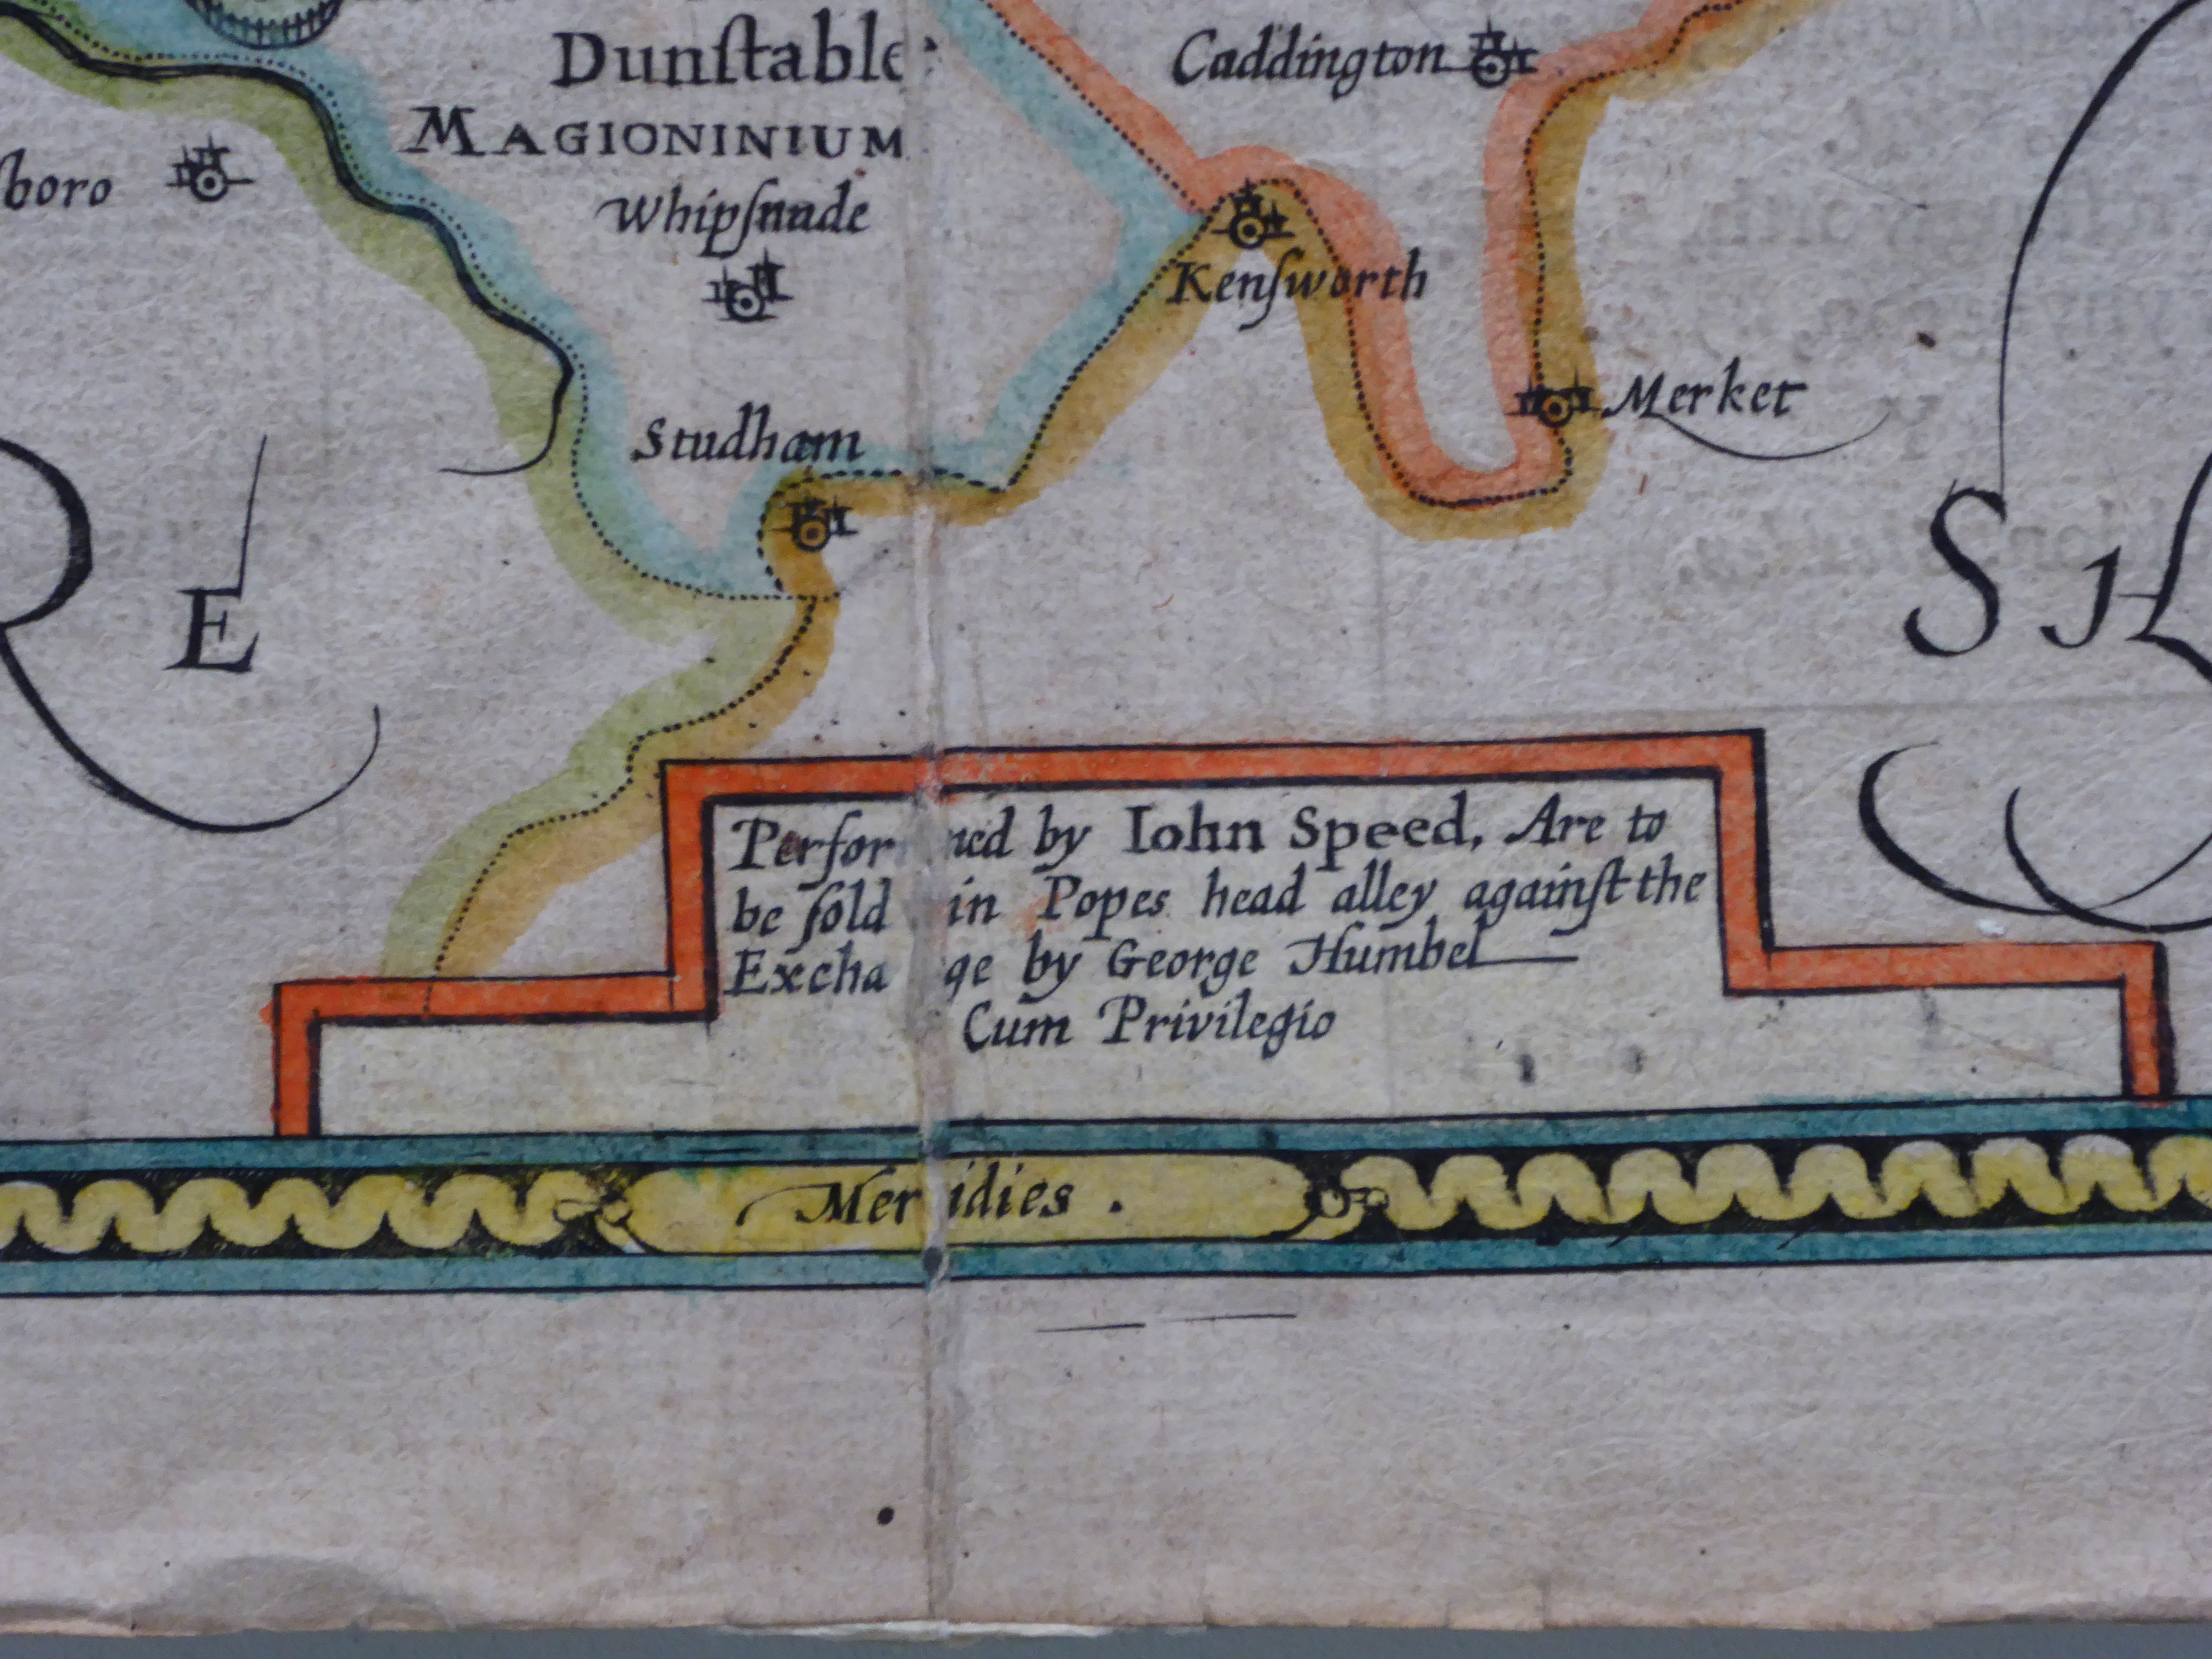 Dunſtable
MAGIONINIUM
Caddington
boro
Whipſnade
Kenſworth
Merket
Studham
E
S I
Performed by Iohn Speed, Are to
be ſold in Popes head alley againſt the
Exchange by George Humbel
Cum Privilegio
Meridies .